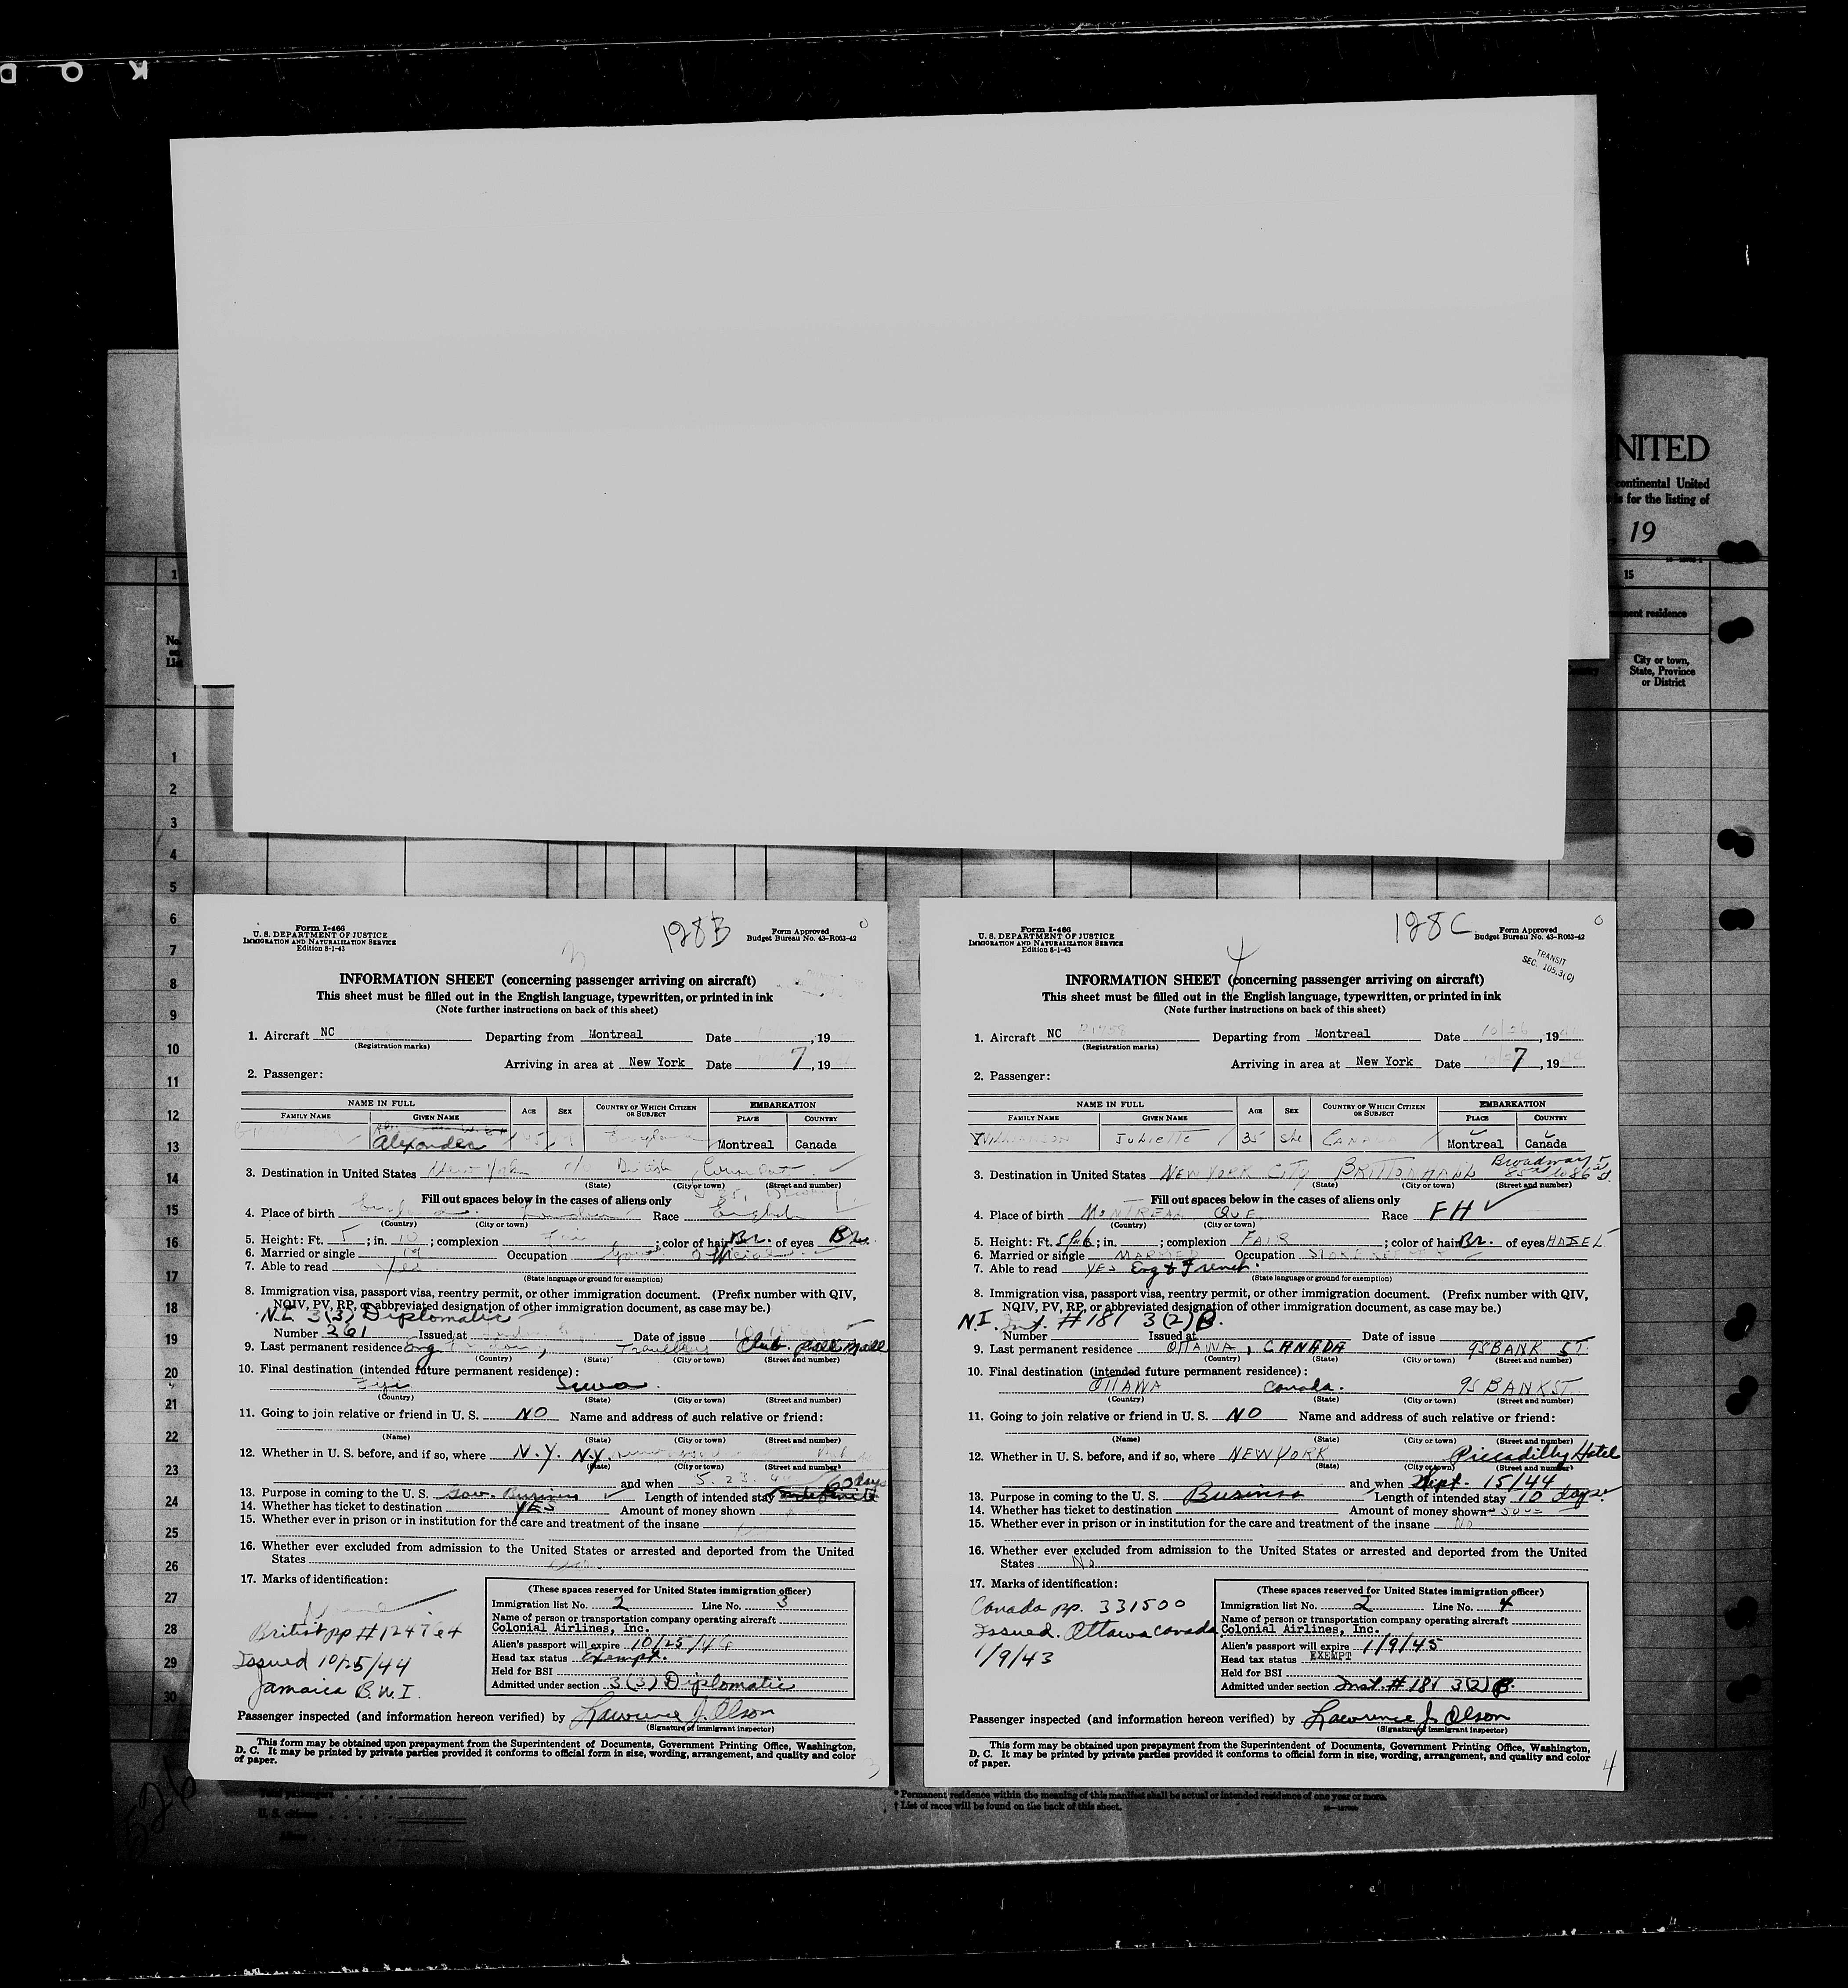 K O D
NITED
continental United
is for the listing of
, 19
15
1
nent residence
No.
on
List
City or town,
State, Province
or District
1
2
3
4
5
6
7
8
9
10
11
12
13
14
15
16
17
18
19
20
21
22
23
24
25
26
27
28
29
30
Form I-466
U. S. DEPARTMENT OF JUSTICE
IMMIGRATION AND NATURALIZATION SERVICE
Edition 8-1-43
128B
Form Approved
Budget Bureau No. 43-R063-42
3
INFORMATION SHEET (concerning passenger arriving on aircraft)
This sheet must be filled out in the English language, typewritten, or printed in ink
(Note further instructions on back of this sheet)
1. Aircraft NC Departing from Montreal Date , 19
(Registration marks)
Arriving in area at New York Date 7, 19
2. Passenger:
NAME IN FULL AGE SEX COUNTRY OF WHICH CITIZEN OR SUBJECT EMBARKATION
FAMILY NAME GIVEN NAME PLACE COUNTRY
Alexander Montreal Canada
3. Destination in United States New York c/o British Consulate
(State) (City or town) (Street and number)
Fill out spaces below in the cases of aliens only
4. Place of birth England London Race English
(Country) (City or town)
5. Height: Ft. 5; in. 10; complexion Fair; color of hair Br. of eyes Br.
6. Married or single M Occupation Gov. Official
7. Able to read Yes
(State language or ground for exemption)
8. Immigration visa, passport visa, reentry permit, or other immigration document. (Prefix number with QIV,
NQIV, PV, RP, or abbreviated designation of other immigration document, as case may be.)
N.I. 3(3) Diplomatic
Number 261 Issued at London Date of issue
9. Last permanent residence Eng London, Travellers Club Pall Mall
(Country) (State) (City or town) (Street and number)
10. Final destination (intended future permanent residence):
Fiji Suva.
(Country) (State) (City or town) (Street and number)
11. Going to join relative or friend in U. S. NO Name and address of such relative or friend:
(Name) (State) (City or town) (Street and number)
12. Whether in U. S. before, and if so, where N.Y. N.Y.
(State) (City or town) (Street and number)
and when 5. 23. 44
13. Purpose in coming to the U. S. Gov. Business Length of intended stay 60 days
14. Whether has ticket to destination YES Amount of money shown
15. Whether ever in prison or in institution for the care and treatment of the insane
16. Whether ever excluded from admission to the United States or arrested and deported from the United
States
17. Marks of identification:
British pp # 1247
Issued 10/25/44
Jamaica B.W.I.
(These spaces reserved for United States immigration officer)
Immigration list No. 2 Line No. 3
Name of person or transportation company operating aircraft
Colonial Airlines, Inc.
Alien's passport will expire 10/25/46
Head tax status Exempt.
Held for BSI
Admitted under section 3(3) Diplomatic
Passenger inspected (and information hereon verified) by Lawrence J. Olson
(Signature of immigrant inspector)
This form may be obtained upon prepayment from the Superintendent of Documents, Government Printing Office, Washington,
D. C. It may be printed by private parties provided it conforms to official form in size, wording, arrangement, and quality and color
of paper.
3
Form I-466
U. S. DEPARTMENT OF JUSTICE
IMMIGRATION AND NATURALIZATION SERVICE
Edition 8-1-43
128C
Form Approved
Budget Bureau No. 43-R063-42
4
TRANSIT
SEC. 105.3(C)
INFORMATION SHEET (concerning passenger arriving on aircraft)
This sheet must be filled out in the English language, typewritten, or printed in ink
(Note further instructions on back of this sheet)
1. Aircraft NC 21758 Departing from Montreal Date 10/26, 19
(Registration marks)
Arriving in area at New York Date 10/27, 19
2. Passenger:
NAME IN FULL AGE SEX COUNTRY OF WHICH CITIZEN OR SUBJECT EMBARKATION
FAMILY NAME GIVEN NAME PLACE COUNTRY
JULIETTE 35 she CANADA Montreal Canada
3. Destination in United States NEW YORK CITY Broadway
(State) (City or town) (Street and number)
Fill out spaces below in the cases of aliens only
4. Place of birth MONTREAL QUE Race FH
(Country) (City or town)
5. Height: Ft. 5ft 6; in. ; complexion FAIR; color of hair Br. of eyes HAZEL
6. Married or single MARRIED Occupation STOREKEEPER
7. Able to read YES Eng & French.
(State language or ground for exemption)
8. Immigration visa, passport visa, reentry permit, or other immigration document. (Prefix number with QIV,
NQIV, PV, RP, or abbreviated designation of other immigration document, as case may be.)
N.I. Inst. #181 3(2)B.
Number Issued at Date of issue
9. Last permanent residence OTTAWA, CANADA 95 BANK ST.
(Country) (State) (City or town) (Street and number)
10. Final destination (intended future permanent residence):
OTTAWA Canada. 95 BANK ST.
(Country) (State) (City or town) (Street and number)
11. Going to join relative or friend in U. S. NO Name and address of such relative or friend:
(Name) (State) (City or town) (Street and number)
12. Whether in U. S. before, and if so, where NEW YORK Piccadilly Hotel
(State) (City or town) (Street and number)
and when Sept. 15/44
13. Purpose in coming to the U. S. Business Length of intended stay 10 days.
14. Whether has ticket to destination Amount of money shown
15. Whether ever in prison or in institution for the care and treatment of the insane No
16. Whether ever excluded from admission to the United States or arrested and deported from the United
States No
17. Marks of identification:
Canada pp. 331500
Issued. Ottawa Canada
1/9/43
(These spaces reserved for United States immigration officer)
Immigration list No. 2 Line No. 4
Name of person or transportation company operating aircraft
Colonial Airlines, Inc.
Alien's passport will expire 1/9/45
Head tax status EXEMPT
Held for BSI
Admitted under section Inst. #181 3(2)B.
Passenger inspected (and information hereon verified) by Lawrence J. Olson
(Signature of immigrant inspector)
This form may be obtained upon prepayment from the Superintendent of Documents, Government Printing Office, Washington,
D. C. It may be printed by private parties provided it conforms to official form in size, wording, arrangement, and quality and color
of paper.
4
Total passengers
U. S. citizens
Aliens
* Permanent residence within the meaning of this manifest shall be actual or intended residence of one year or more.
† List of races will be found on the back of this sheet.